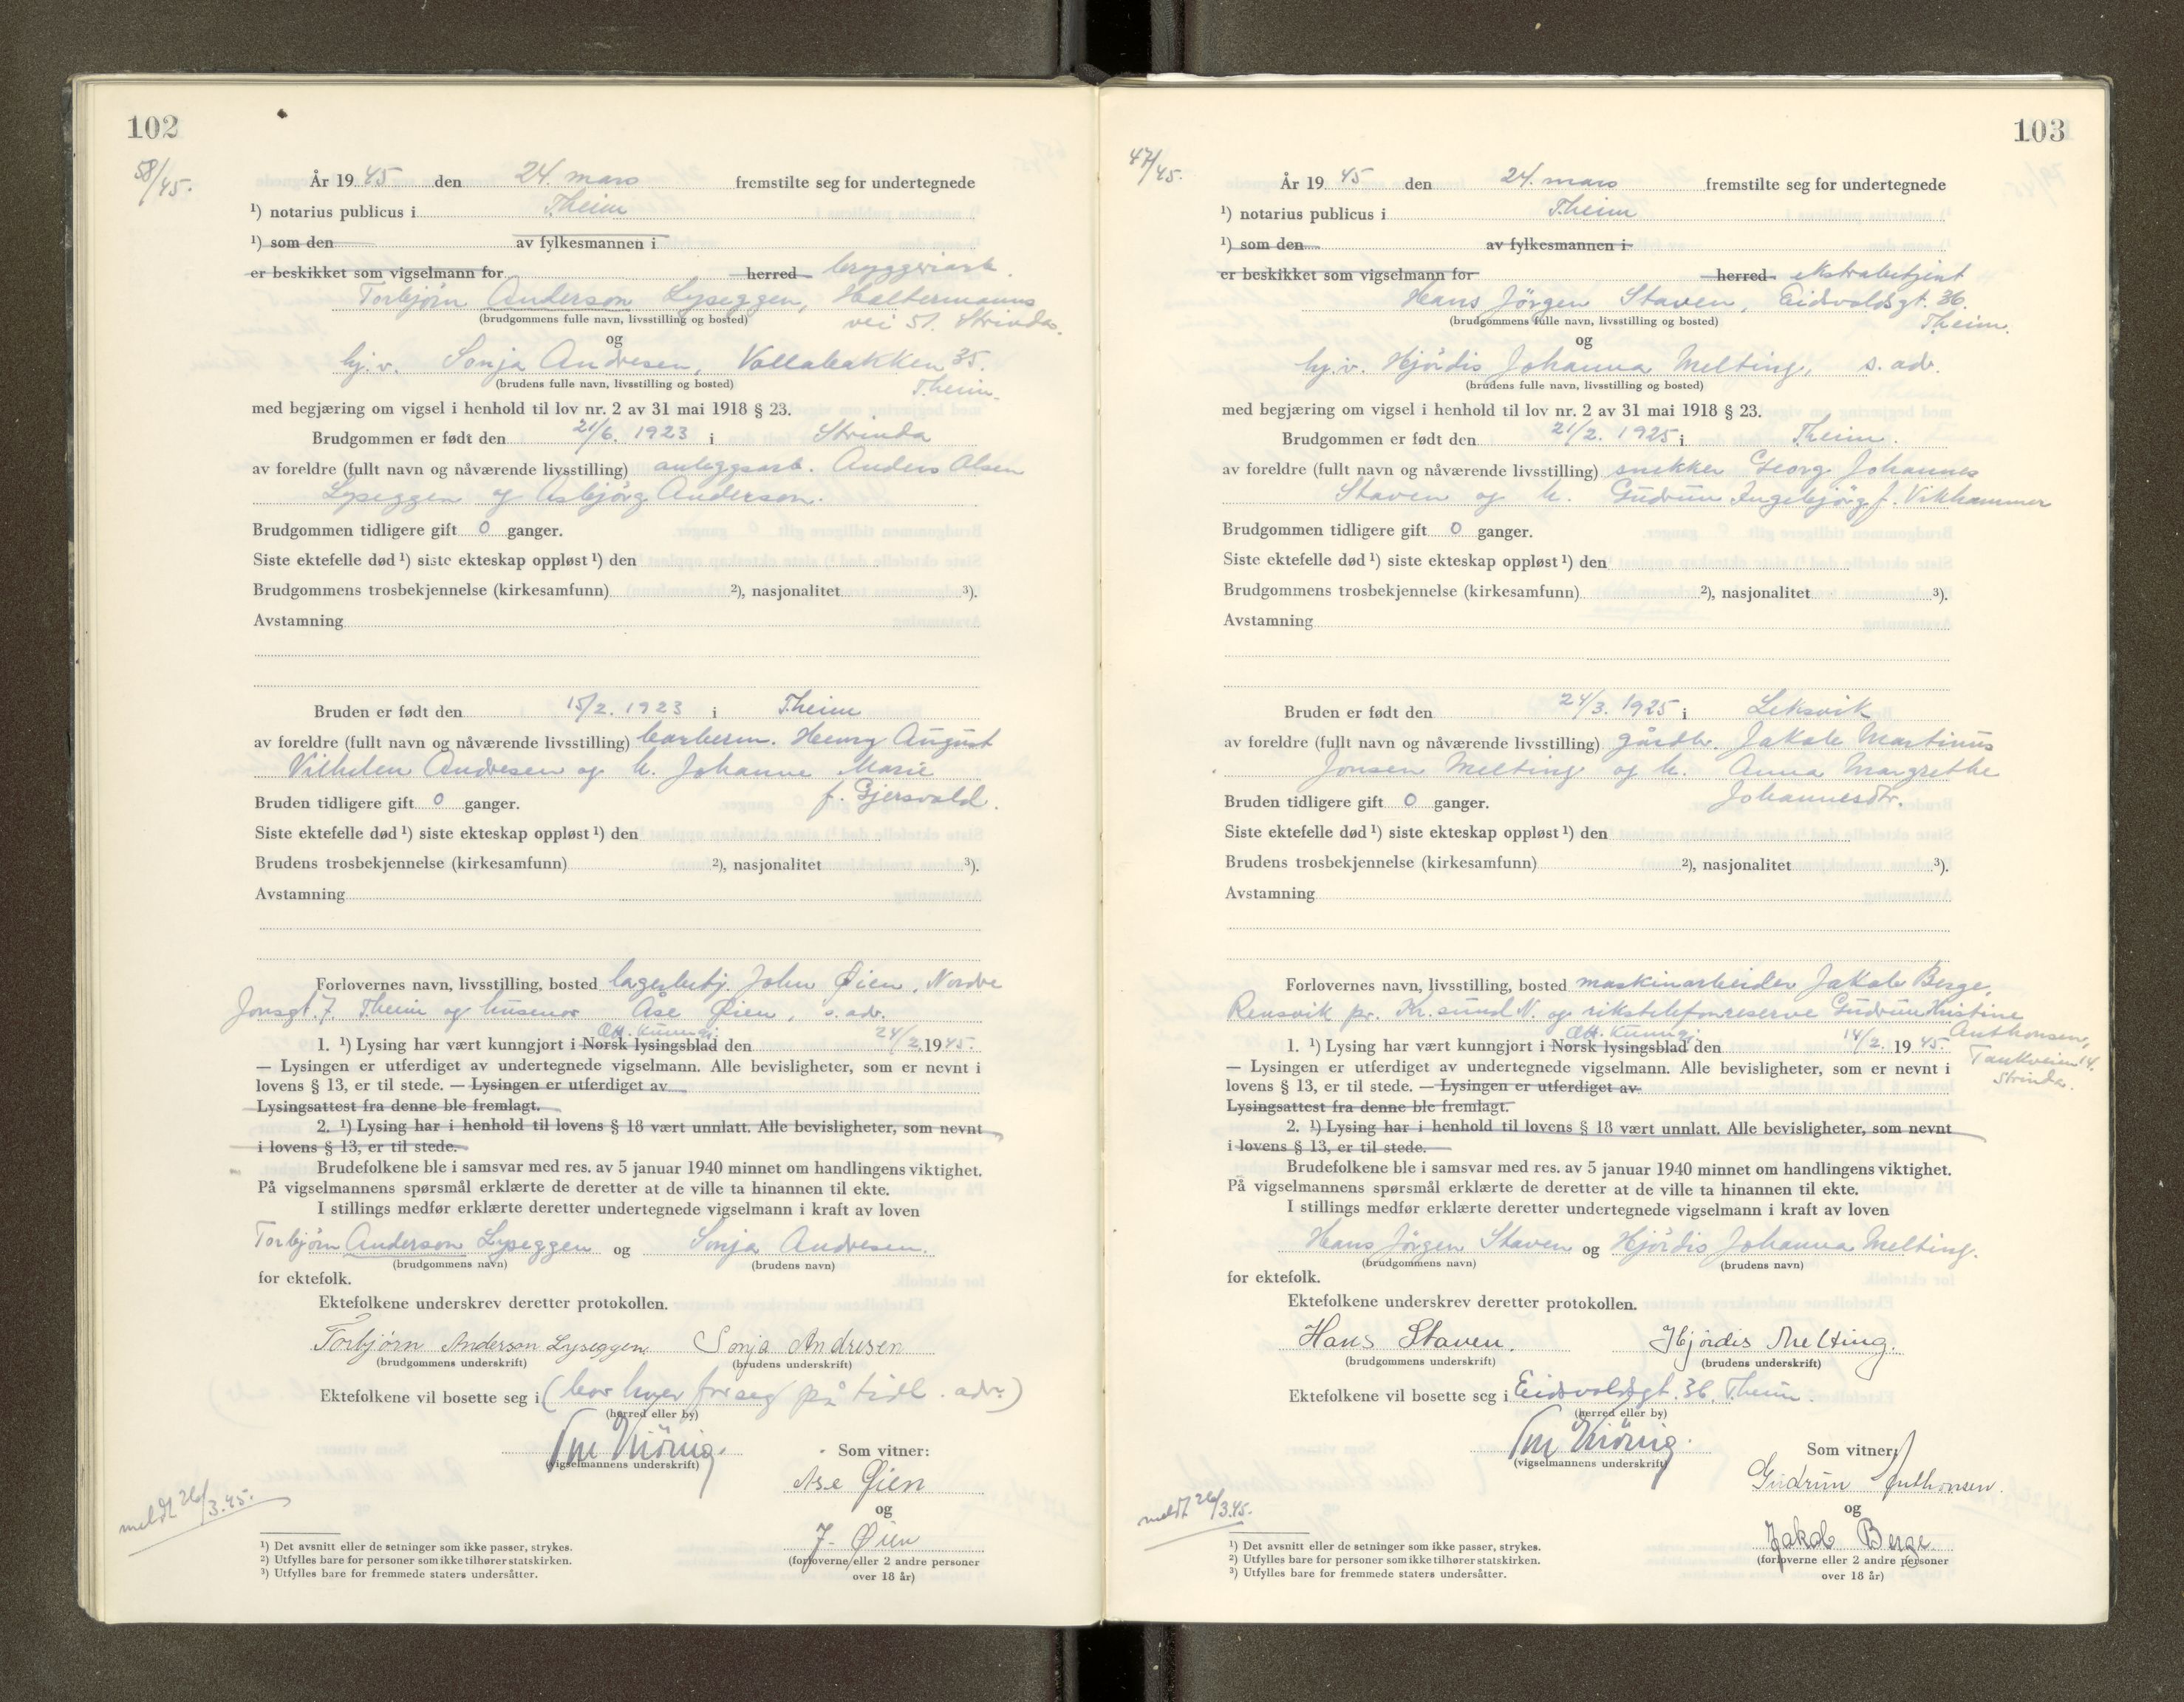 102
58/45.
År 19 45 den 24. mars fremstilte seg for undertegnede
¹) notarius publicus i T.heim
¹) som den av fylkesmannen i
er beskikket som vigselmann for herred bryggeriarb.
Torbjörn Anderson Lyseggen, Haltermanns
(brudgommens fulle navn, livsstilling og bosted) vei 51. Strinda.
og
hj.v. Sonja Andresen, Vollabakken 35.
(brudens fulle navn, livsstilling og bosted) T.heim.
med begjæring om vigsel i henhold til lov nr. 2 av 31 mai 1918 § 23.
Brudgommen er født den 21/6. 1923 i Strinda
av foreldre (fullt navn og nåværende livsstilling) anleggsarb. Anders Olsen
Lyseggen og Asbjörg Anderson.
Brudgommen tidligere gift 0 ganger.
Siste ektefelle død ¹) siste ekteskap oppløst ¹) den
Brudgommens trosbekjennelse (kirkesamfunn) ²), nasjonalitet ³).
Avstamning
Bruden er født den 15/2. 1923 i T.heim
av foreldre (fullt navn og nåværende livsstilling) barberm. Henry August
Vilhelm Andresen og h. Johanne Marie
f. Gjersvold.
Bruden tidligere gift 0 ganger.
Siste ektefelle død ¹) siste ekteskap oppløst ¹) den
Brudens trosbekjennelse (kirkesamfunn) ²), nasjonalitet ³).
Avstamning
Forlovernes navn, livsstilling, bosted lagerbetj. John Øien, Nordre
Jonsgt. 7. T.heim og husmor Åse Øien, s. adr.
Off. kunngj.
1. ¹) Lysing har vært kunngjort i Norsk lysingsblad den 24/2. 19 45.
— Lysingen er utferdiget av undertegnede vigselmann. Alle bevisligheter, som er nevnt i
lovens § 13, er til stede. — Lysingen er utferdiget av
Lysingsattest fra denne ble fremlagt.
2. ¹) Lysing har i henhold til lovens § 18 vært unnlatt. Alle bevisligheter, som nevnt
i lovens § 13, er til stede.
Brudefolkene ble i samsvar med res. av 5 januar 1940 minnet om handlingens viktighet.
På vigselmannens spørsmål erklærte de deretter at de ville ta hinannen til ekte.
I stillings medfør erklærte deretter undertegnede vigselmann i kraft av loven
Torbjörn Anderson Lyseggen og Sonja Andresen.
(brudgommens navn) (brudens navn)
for ektefolk.
Ektefolkene underskrev deretter protokollen.
Torbjörn Anderson Lyseggen. Sonja Andresen
(brudgommens underskrift) (brudens underskrift)
Ektefolkene vil bosette seg i (bor hver for seg på tidl. adr.)
(herred eller by)
(vigselmannens underskrift)
Som vitner:
Åse Øien
og
J. Øien
(forloverne eller 2 andre personer
over 18 år)
meldt 26/3.45.
¹) Det avsnitt eller de setninger som ikke passer, strykes.
²) Utfylles bare for personer som ikke tilhører statskirken.
³) Utfylles bare for fremmede staters undersåtter.
103
47/45.
År 19 45 den 24. mars fremstilte seg for undertegnede
¹) notarius publicus i T.heim
¹) som den av fylkesmannen i
er beskikket som vigselmann for herred ekstrabetjent
Hans Jörgen Staven, Eidsvoldsgt. 36.
(brudgommens fulle navn, livsstilling og bosted) T.heim.
og
hj.v. Hjördis Johanna Melting, s. adr.
(brudens fulle navn, livsstilling og bosted)
med begjæring om vigsel i henhold til lov nr. 2 av 31 mai 1918 § 23.
Brudgommen er født den 21/2. 1925 i T.heim.
av foreldre (fullt navn og nåværende livsstilling) snekker Georg Johannes
Staven og h. Gudrun Ingebjörg f. Vikhammer
Brudgommen tidligere gift 0 ganger.
Siste ektefelle død ¹) siste ekteskap oppløst ¹) den
Brudgommens trosbekjennelse (kirkesamfunn) ²), nasjonalitet ³).
Avstamning
Bruden er født den 24/3. 1925 i Leksvik
av foreldre (fullt navn og nåværende livsstilling) gårdbr. Jakob Martinus
Jonsen Melting og h. Anna Margrethe
Johannesdtr.
Bruden tidligere gift 0 ganger.
Siste ektefelle død ¹) siste ekteskap oppløst ¹) den
Brudens trosbekjennelse (kirkesamfunn) ²), nasjonalitet ³).
Avstamning
Forlovernes navn, livsstilling, bosted maskinarbeider Jakob Berge,
Rensvik pr. Kr.sund N. og rikstelefonreserve Gudrun Kristine
Anthonsen,
Off. kunngj.
1. ¹) Lysing har vært kunngjort i Norsk lysingsblad den 14/2. 19 45.
Tankveien 14.
Strinda.
— Lysingen er utferdiget av undertegnede vigselmann. Alle bevisligheter, som er nevnt i
lovens § 13, er til stede. — Lysingen er utferdiget av
Lysingsattest fra denne ble fremlagt.
2. ¹) Lysing har i henhold til lovens § 18 vært unnlatt. Alle bevisligheter, som nevnt
i lovens § 13, er til stede.
Brudefolkene ble i samsvar med res. av 5 januar 1940 minnet om handlingens viktighet.
På vigselmannens spørsmål erklærte de deretter at de ville ta hinannen til ekte.
I stillings medfør erklærte deretter undertegnede vigselmann i kraft av loven
Hans Jörgen Staven og Hjördis Johanna Melting.
(brudgommens navn) (brudens navn)
for ektefolk.
Ektefolkene underskrev deretter protokollen.
Hans Staven. Hjördis Melting.
(brudgommens underskrift) (brudens underskrift)
Ektefolkene vil bosette seg i Eidsvoldsgt. 36. T.heim.
(herred eller by)
(vigselmannens underskrift)
Som vitner:
Gudrun Anthonsen.
og
Jakob Berge.
(forloverne eller 2 andre personer
over 18 år)
meldt 26/3.45.
¹) Det avsnitt eller de setninger som ikke passer, strykes.
²) Utfylles bare for personer som ikke tilhører statskirken.
³) Utfylles bare for fremmede staters undersåtter.